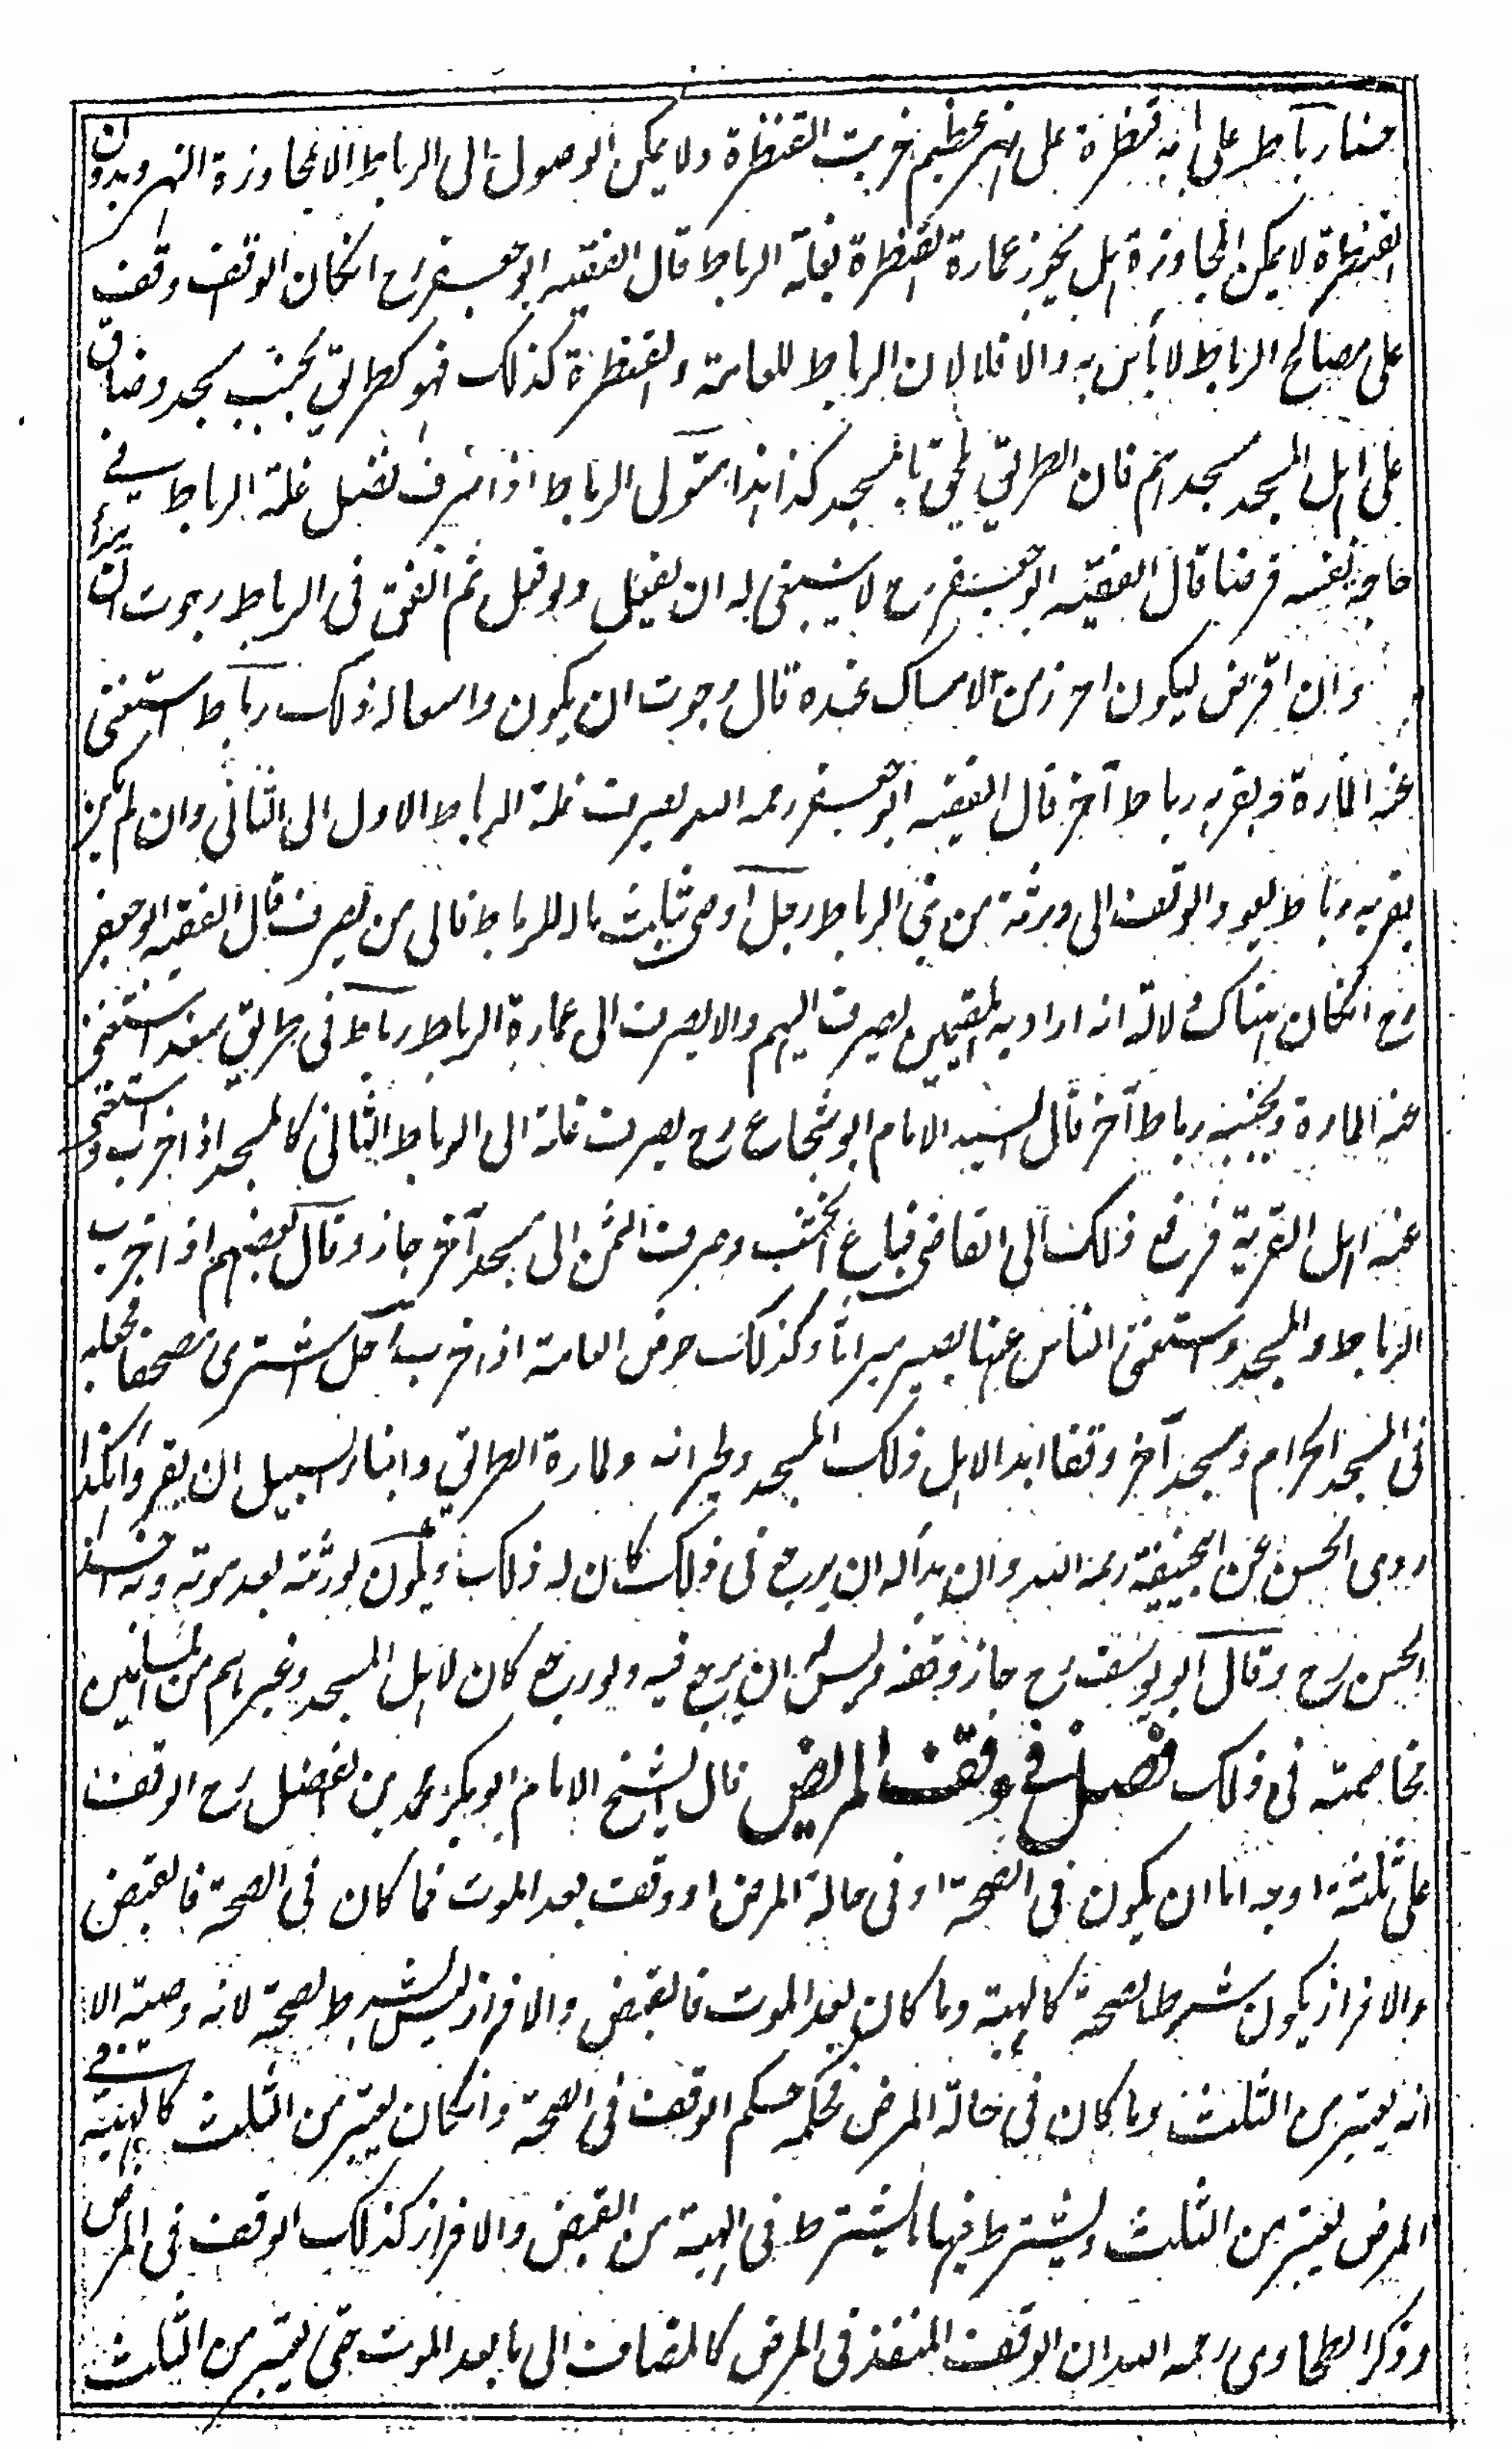 رباط على بابه قنطرة على نهر عظيم خربت القنطرة ولا يمكن الوصول الى الرباط الا بمجاوزة النهر وبدون
القنطرة لا يمكن المجاوزة هل يجوز عمارة القنطرة بغلة الرباط قال الفقيه ابو جعفر رح انكان الوقف وقف
على مصالح الرباط لا بأس به والا فلا لان الرباط للعامة والقنطرة كذلك فهو كطريق بجنب مسجد وضاق
على اهل المسجد مسجدهم فان الطريق يلحق بالمسجد كذا هذا متولى الرباط اذا صرف فضل غلة الرباط في
حاجة نفسه قرضا قال الفقيه ابو جعفر رح لا ينبغى له ان يفعل ولو فعل ثم انفق فى الرباط رجوت ان يبرأ
وان اقرض ليكون احرز من الامساك عنده قال رجوت ان يكون واسعا له ذلك رباط استغنى
عنه المارة وبقربه رباط آخر قال الفقيه ابو جعفر رحمه الله يصرف غلة الرباط الاول الى الثانى وان لم يكن
بقربه رباط يعود الوقف الى ورثة من بنى الرباط رجل اوصى بثلث ماله للرباط فالى من يصرف قال الفقيه ابو جعفر
رح انكان هناك دلالة انه اراد به المقيمين يصرف اليهم والا يصرف الى عمارة الرباط رباط فى طريق بعيد استغنى
عنه المارة وبجنبه رباط آخر قال السيد الامام ابو شجاع رح يصرف غلته الى الرباط الثانى كالمسجد اذا خرب واستغنى
عنه اهل القرية فرفع ذلك الى القاضى فباع الخشب وصرف الثمن الى مسجد آخر جاز وقال بعضهم اذا خرب
الرباط والمسجد واستغنى الناس عنها يصير ميراثا وكذلك حوض العامة اذا خرب رجل اشترى مصحفا فجعله
فى المسجد الحرام او مسجد آخر وقفا ابدا لاهل ذلك المسجد ولجيرانه ولمارة الطريق وابناء السبيل ان يقرؤا هكذا
روى الحسن عن ابيحنيفة رحمه الله وان بدا له ان يرجع فى ذلك كان له ذلك ويكون لورثته بعد موته وبه اخذ
الحسن رح وقال ابو يوسف رح جاز وقفه وليس له ان يرجع فيه ولو رجع كان لاهل المسجد وغيرهم من المسلمين
مخاصمته فى ذلك فصل فى وقف المريض قال الشيخ الامام ابو بكر محمد بن الفضل رح الوقف
على ثلثة اوجه اما ان يكون فى الصحة او فى حالة المرض او وقف بعد الموت فما كان فى الصحة فالقبض
والافراز يكون شرطا لصحته كالهبة وما كان بعد الموت فالقبض والافراز ليس بشرط لصحته لانه وصية الا
انه يعتبر من الثلث وما كان فى حالة المرض فحكمه حكم الوقف فى الصحة وانكان يعتبر من الثلث كالهبة في
المرض يعتبر من الثلث ويشترط فيها ما يشترط فى الهبة من القبض والافراز كذلك الوقف فى المرض
وذكر الطحاوى رحمه الله ان الوقف المنفذ فى المرض كالمضاف الى ما بعد الموت حتى يعتبر من الثلث